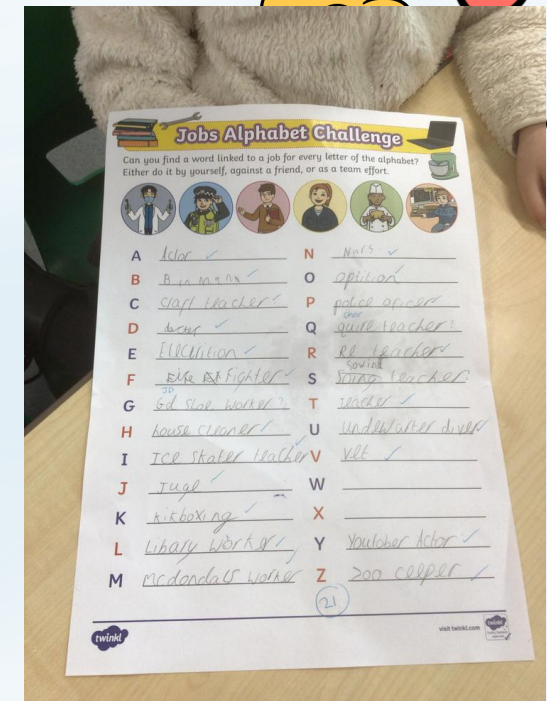 Jobs Alphabet Challenge
Can you find a word linked to a job for every letter of the alphabet?
Either do it by yourself, against a friend, or as a team effort.
A Actor
B Bin man
C Claft teacher
D docter
E Elecrition
F Fighter
G Gd stoe worker
H house cleaner
I Ice skater teacher
J Juge
K kikboxing
L Libary worker
M Mcdondals worker
N Nurs
O optition
P police oficer
Q quire teacher
R Re teacher
S Sowing teacher
T teacher
U Underwarter diver
V Vet
W
X
Y Youtober Actor
Z zoo ceeper
21
twinkl
visit twinkl.com
twinkl